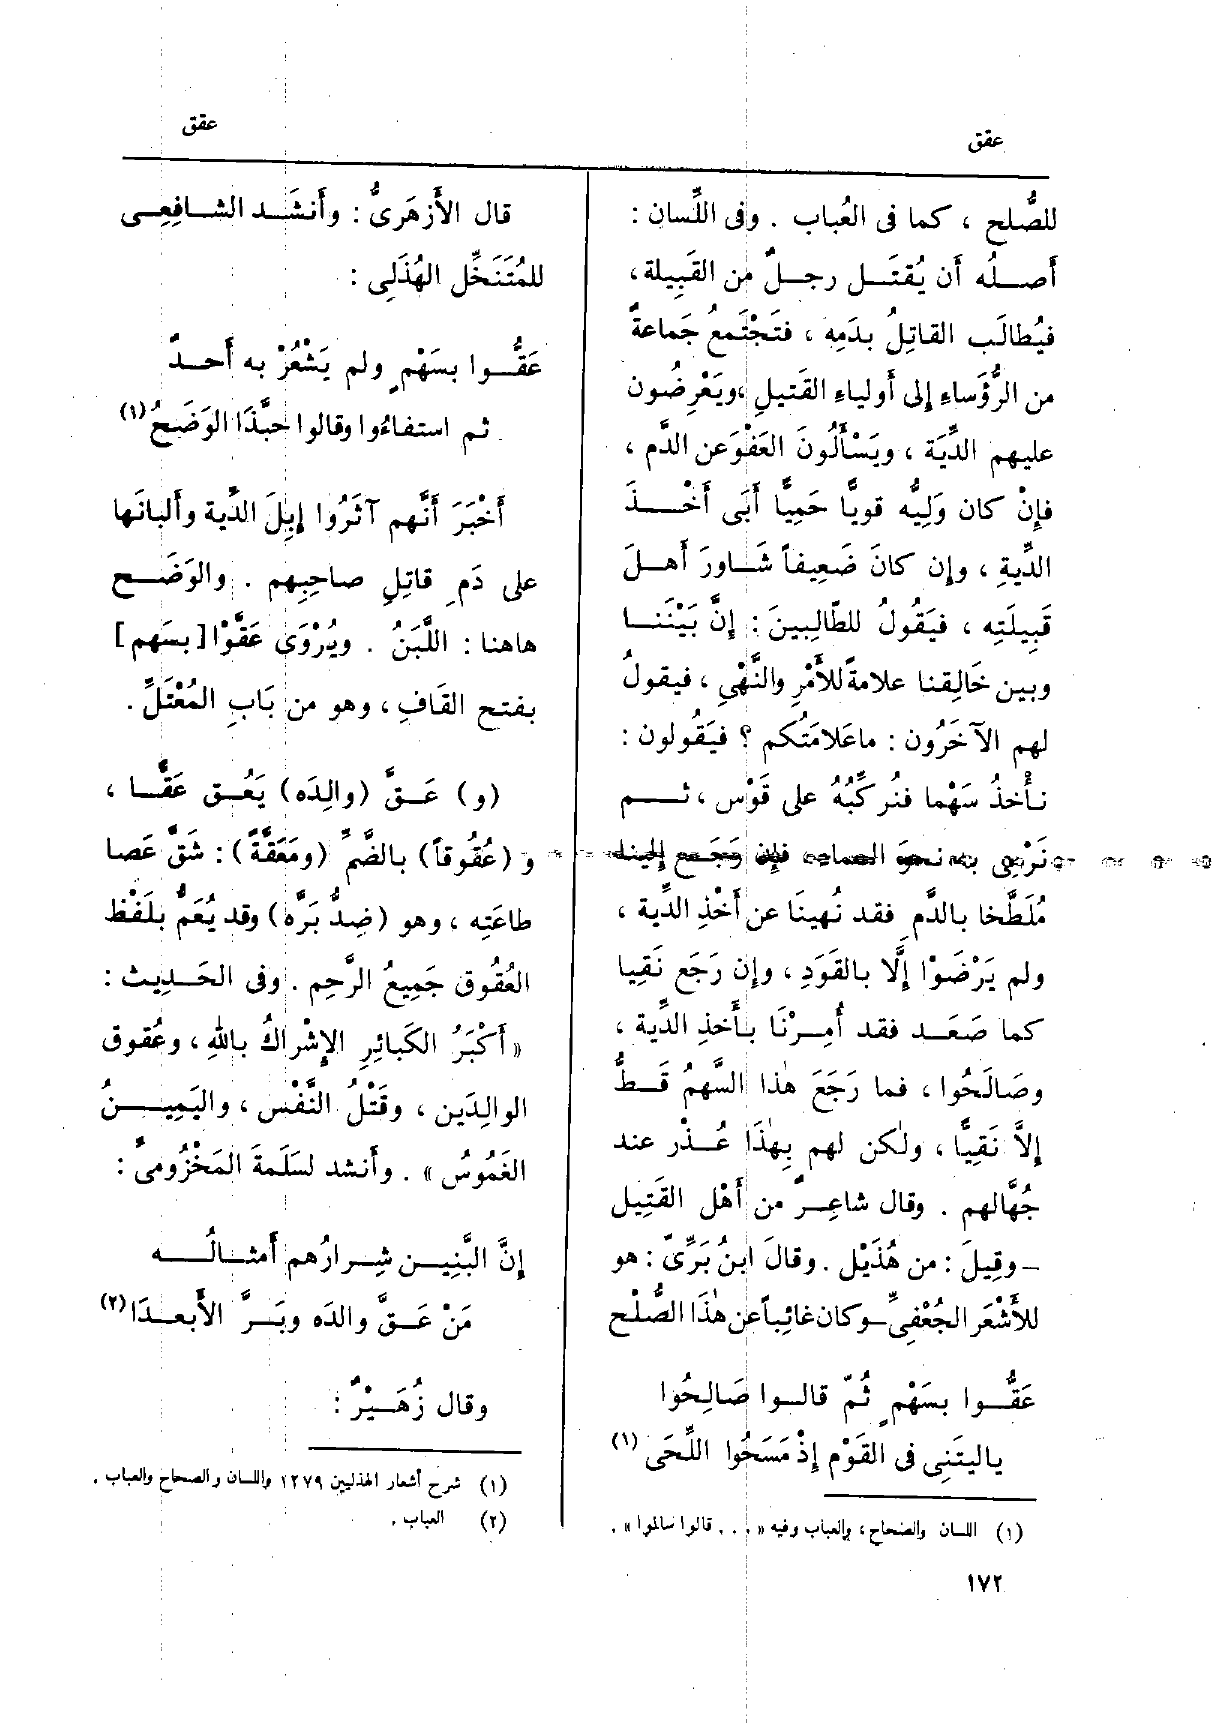 عقق
عقق
للصُّلح ، كما فى العُباب . وفى اللِّسان :
أَصـلُه أَن يُقتَـل رجلٌ من القَبِيلة ،
فيُطالَب القاتِلُ بدَمِه ، فتَجْتَمعُ جَماعةٌ
من الرُّؤَساءِ إِلى أَولياءِ القَتيلِ ،ويَعْرِضُون
عليهم الدِّيَة ، ويَسْأَلُونَ العَفْوَعن الدَّم ،
فإِنْ كان وَلِيُّه قويًّا حَمِيًّا أَبَى أَخْـذَ
الدِّيةِ ، وإِن كانَ ضَعِيفاً شَـاورَ أَهـلَ
قَبِيلَتِه ، فيَقُولُ للطَّالِبينَ : إِنَّ بَيْنَنـا
وبين خَالِقِنا علامةً للأَمْرِ والنَّهْىِ ، فيقولُ
لهم الآخَرُون : ماعَلامَتُكم ؟ فيَقُولون :
نـأْخذُ سَهْما فنُركِّبُهُ على قَوْس ، ثـم
نَرْمِى به نحوَ السماءِ، فإِن رَجَـع إِلينا
مُلَطَّخا بالدَّمِ فقد نُهِينَا عن أَخْذِ الدِّية ،
ولم يَرْضَوْا إِلَّا بالقَوَدِ ، وإِن رَجَع نَقِيا
كما صَعَـد فقد أُمِرْنَا بـأَخذِ الدِّية ،
وصَالَحُوا ، فما رَجَعَ هٰذا السَّهمُ قَـطُّ
إِلاَّ نَقِيًّا ، ولٰكن لهم بِهٰذَا عُـذْر عند
جُهَّالهم . وقال شاعِـرٌ من أَهْل القَتِيل
– وقِيلَ : من هُذَيْل . وقالَ ابنُ بَرِّىّ : هو
للأَشْعَر الجُعْفِىِّ–وكان غائِباً عن هٰذا الصُّلْح
عَقُّـوا بسَهْمٍ ثُمّ قالـوا صَالِحُوا
ياليتَنِى فى القَوْم إِذْ مَسَحُوا اللِّحَى (١)
(١) اللسان والصحاح، والعباب وفيه « . . . قالوا سالموا » .
١٧٢
قال الأَزهَرىُّ : وأَنشَـد الشـافِعِـى
للمُتَنَخِّل الهُذَلِى :
عَقُّـوا بسَهْمٍ ولم يَشْعُرْ به أَحـدٌ
ثم استفاءُوا وقالوا حَبَّذَا الوَضَحُ (١)
أَخْبَرَ أَنَّهم آثَرُوا إِبِلَ الدِّية وأَلبانَها
على دَمِ قاتِلِ صاحِبِهم . والوَضَـح
هاهنا : اللَّبَنُ . ويُرْوَى عَقَّوْا [بسَهم]
بفتح القَافِ ، وهو من بَابِ المُعْتَلِّ .
(و) عَـقَّ (والِدَه) يَعُـق عَقًّـا ،
و (عُقُوقاً) بالضَّمِّ (ومَعَقَّةً) : شَقَّ عَصا
طاعَتِه ، وهو (ضِدُّ بَرَّه) وقد يُعَمُّ بلَفْظ
العُقُوق جَمِيعُ الرَّحِم . وفى الحَـدِيث :
« أَكْبَرُ الكَبائِرِ الإِشْراكُ باللهِ ، وعُقوق
الوالِدَين ، وقَتْلُ النَّفْس ، واليَمِينُ
الغَمُوسُ » . وأَنشد لسَلَمةَ المَخْزُومىِّ :
إِنَّ البَّنِيـن شِـرارُهم أَمثـالُـه
مَنْ عَـقَّ والدَه وبَـرَّ الأَبعـدَا (٢)
وقال زُهَـيْرٌ :
(١) شرح أشعار الهذليين ١٢٧٩ واللسان والصحاح والعباب .
(٢) العباب .